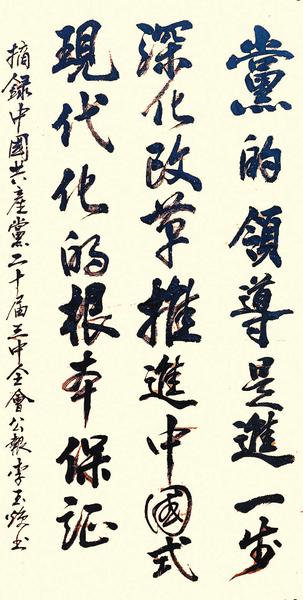 黨的領導是進一步
深化改革推進中國式
現代化的根本保证
摘録中國共産黨二十届三中全會公報李玉